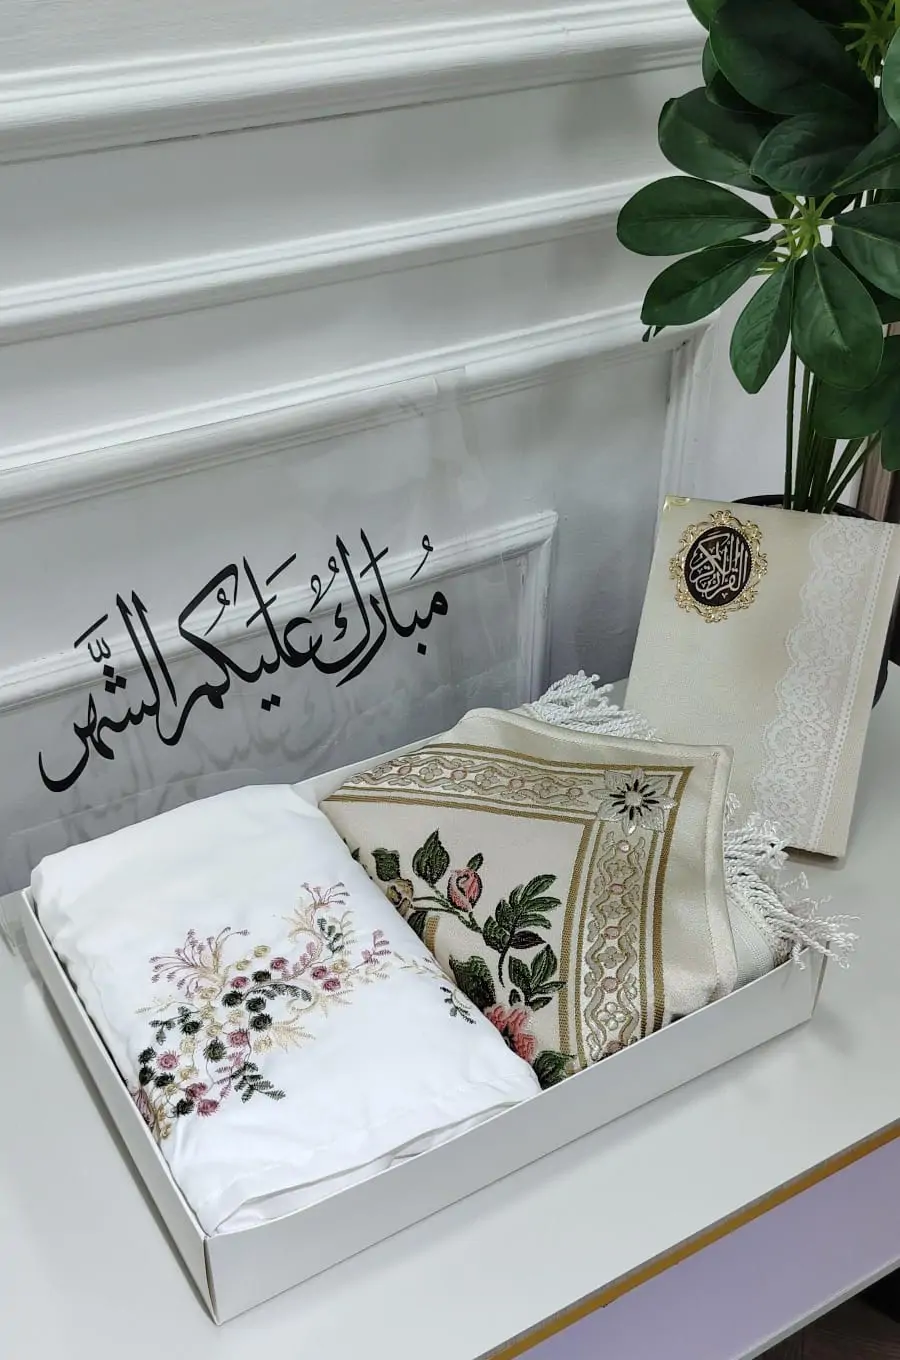 مُبارَكُ عَليكُم الشَّهر
القرآن الكريم